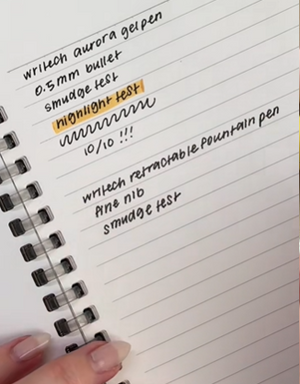 writech aurora gel pen
0.5mm bullet
smudge test
highlight test
10/10 !!!
writech retractable fountain pen
fine nib
smudge test